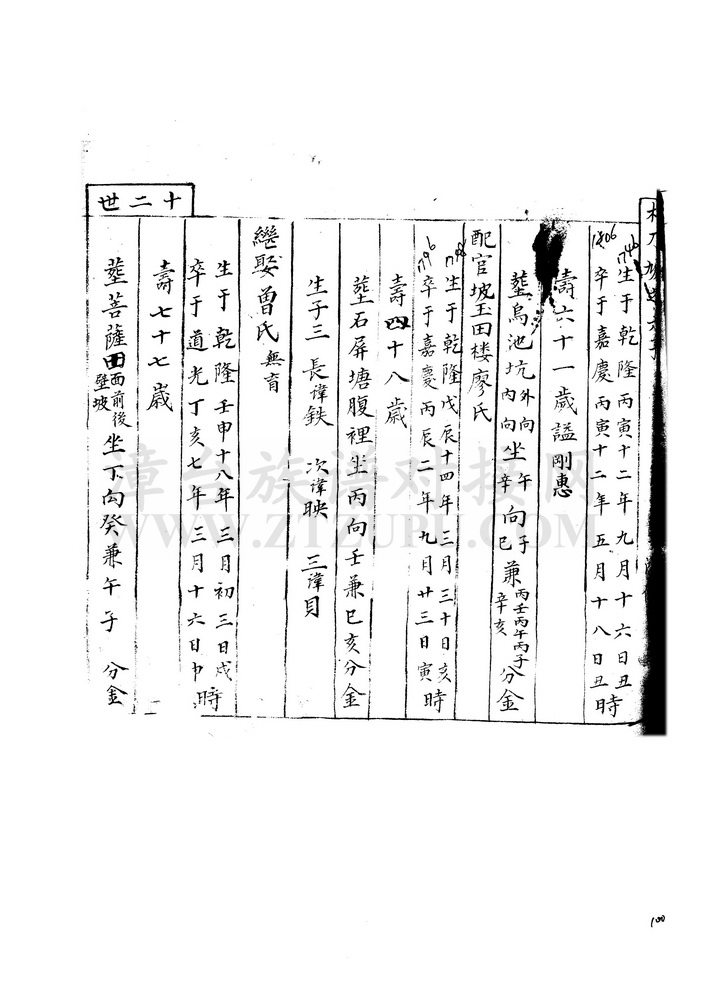 生于乾隆丙寅十二年九月十六日丑時
1746
卒于嘉慶丙寅十二年五月十八日丑時
1806
壽六十一歲謚剛惠
塟烏池坑外向內向坐午辛向子巳兼丙壬丙午丙子辛亥分金
配官坡玉田楼廖氏
生于乾隆戊辰十四年三月三十日亥時
1748
卒于嘉慶丙辰二年九月廿三日寅時
1796
壽四十八歲
塟石屏塘腹裡坐丙向壬兼巳亥分金
生子三 長諱鉄 次諱映 三諱貝
繼娶曽氏無育
生于乾隆壬申十八年三月初三日戌時
卒于道光丁亥七年三月十六日申時
壽七十七歲
塟菩薩田面前後壁坡坐丁向癸兼午子分金
十二世
100
漳台族谱对接网
WWW.ZTZUPU.COM